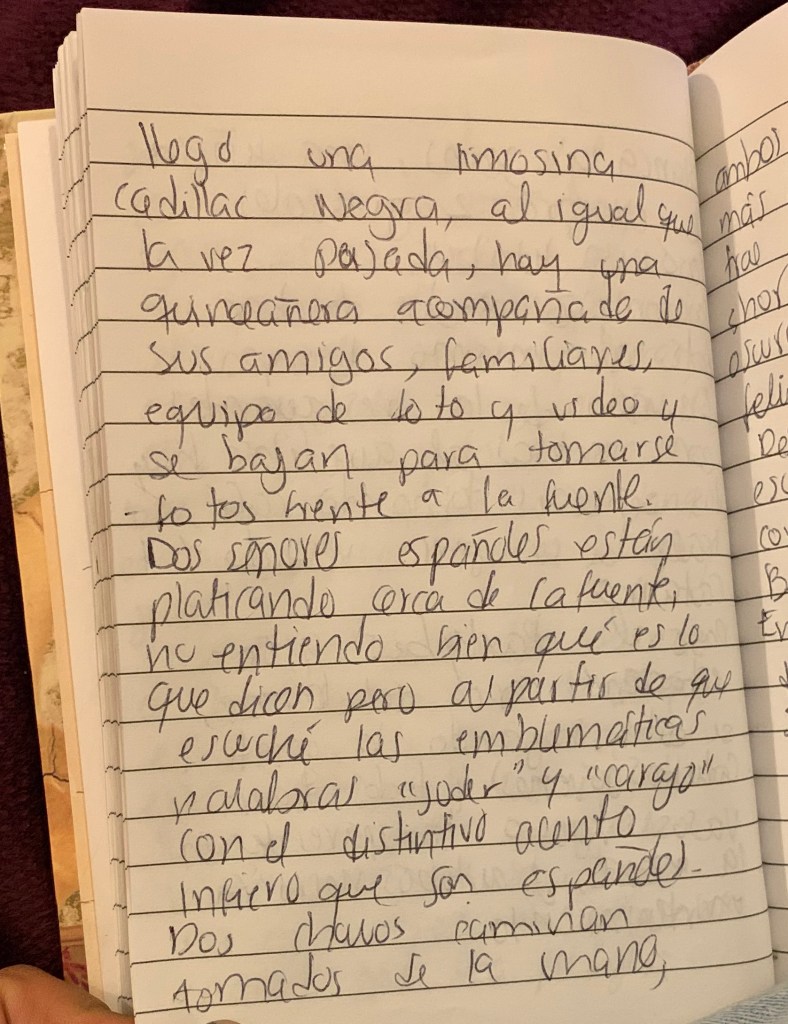 llegó una limosina
Cadillac Negra, al igual que
la vez pasada, hay una
quinceañera acompañada de
sus amigos, familiares,
equipo de foto y video y
se bajan para tomarse
fotos frente a la fuente.
Dos señores españoles están
platicando cerca de la fuente,
no entiendo bien qué es lo
que dicen pero a partir de que
escuché las emblemáticas
palabras "joder" y "carajo"
con el distintivo acento,
infiero que son españoles.
Dos chavos caminan
tomados de la mano,
ambos
más